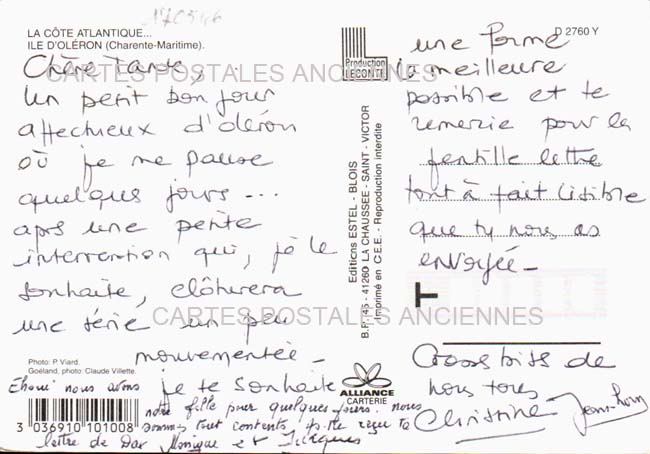 170546
LA CÔTE ATLANTIQUE...
ILE D'OLÉRON (Charente-Maritime).
D 2760 Y
Production
LECONTE
CARTES POSTALES ANCIENNES
Chère
Un petit bonjour
affectueux d'oléron
où je me pause
quelques jours...
aprs une petite
intervention qui, je le
souhaite, clôturera
une série un peu
mouvementée _
je te souhaite
une forme
la meilleure
possible et te
remercie pour la
gentille lettre
tout à fait lisible
que tu nous as
envoyée _
Gross biss de
nous tous
Christine
Editions ESTEL - BLOIS
B.P. 45 - 41260 LA CHAUSSEE - SAINT - VICTOR
Imprimé en C.E.E. - Reproduction interdite
CARTES POSTALES ANCIENNES
Photo: P. Viard.
Goéland, photo: Claude Villette.
ALLIANCE
CARTERIE
nous avons
notre fille pour quelques jours. nous
sommes tout contents reçu ta
lettre de Monique et Jacques
3 036910 101008